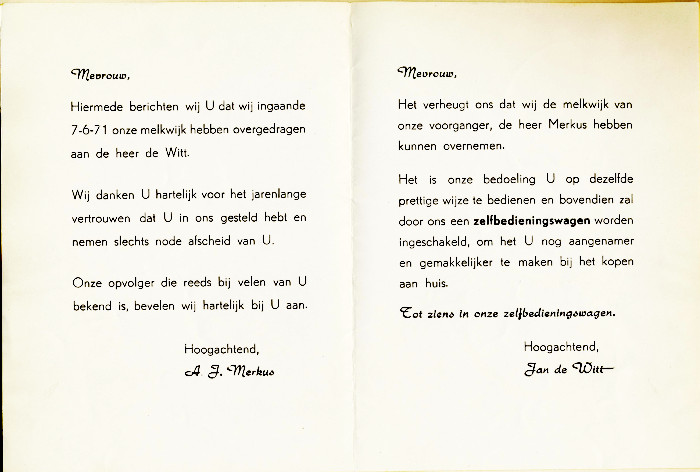 Mevrouw,
Hiermede berichten wij U dat wij ingaande
7-6-71 onze melkwijk hebben overgedragen
aan de heer de Witt.
Wij danken U hartelijk voor het jarenlange
vertrouwen dat U in ons gesteld hebt en
nemen slechts node afscheid van U.
Onze opvolger die reeds bij velen van U
bekend is, bevelen wij hartelijk bij U aan.
Hoogachtend,
A. J. Merkus
Mevrouw,
Het verheugt ons dat wij de melkwijk van
onze voorganger, de heer Merkus hebben
kunnen overnemen.
Het is onze bedoeling U op dezelfde
prettige wijze te bedienen en bovendien zal
door ons een zelfbedieningswagen worden
ingeschakeld, om het U nog aangenamer
en gemakkelijker te maken bij het kopen
aan huis.
Tot ziens in onze zelfbedieningswagen.
Hoogachtend,
Jan de Witt